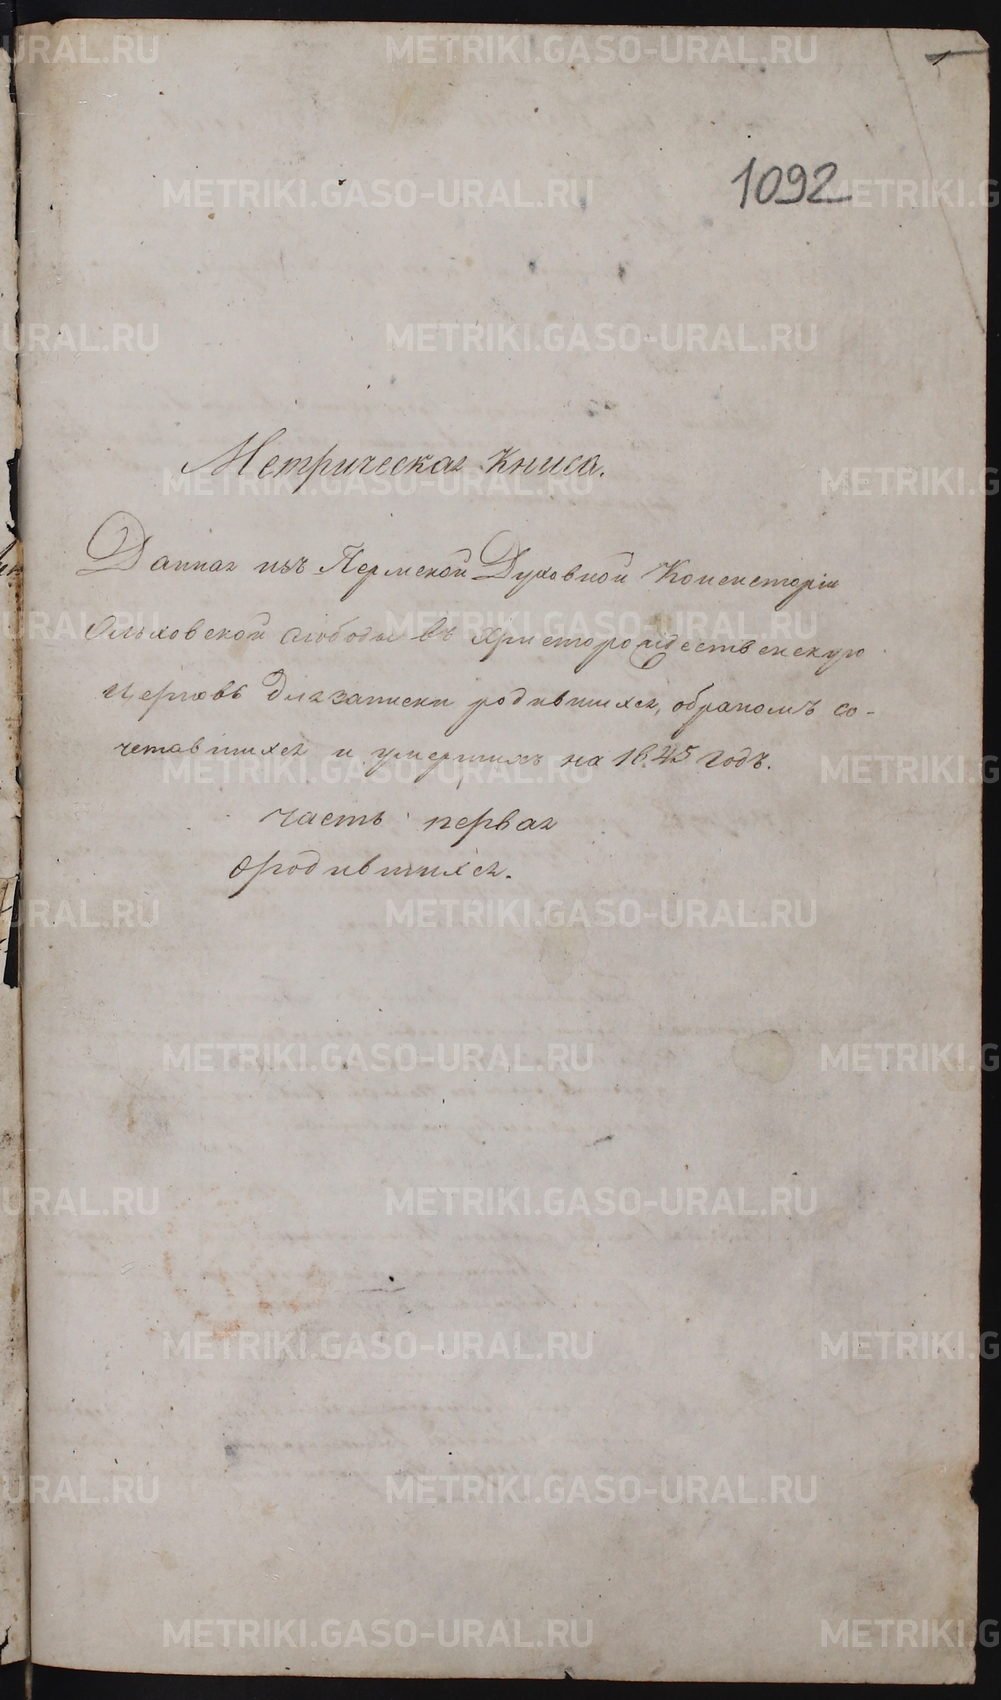 1
1092
Метрическая Книга.
Данная изъ Пермской Духовной Консисторіи
Ольховской слободы въ Христорождественскую
церковь для записки родившихся, обракомъ со-
четавшихся и умершихъ на 1845 годъ.
часть первая
ородившихся.
METRIKI.GASO-URAL.RU